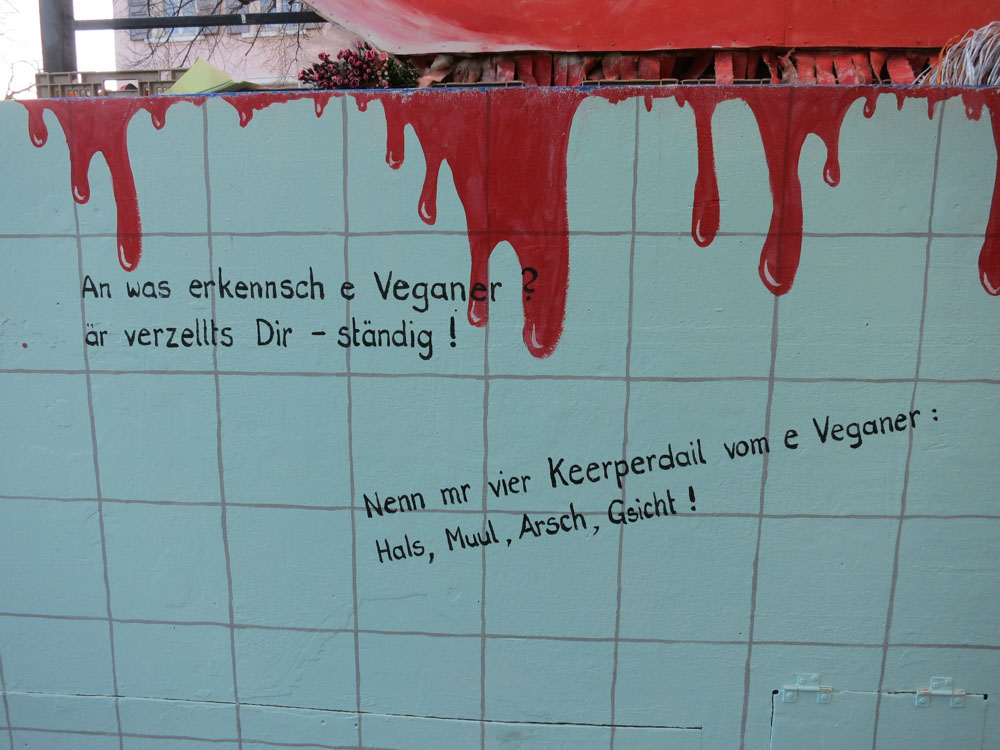 An was erkennsch e Veganer ?
är verzellts Dir - ständig !
Nenn mr vier Keerperdail vom e Veganer :
Hals, Muul, Arsch, Gsicht !